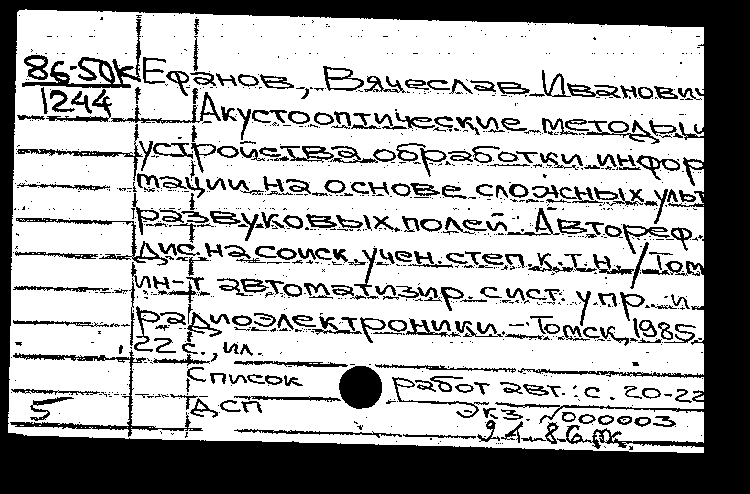 86-50К Ефанов, Вячеслав Иванович
1244
Акустооптические методы и
устройства обработки инфор
мации на основе сложных ульт
развуковых полей: Автореф.
дис. на соиск. учен. степ. к.т.н. / Том
ин-т автоматизир. сист. упр. и
радиоэлектроники. - Томск, 1985.
22 с., ил.
Список работ авт.: с. 20-22
5 ДСП экз. №000003